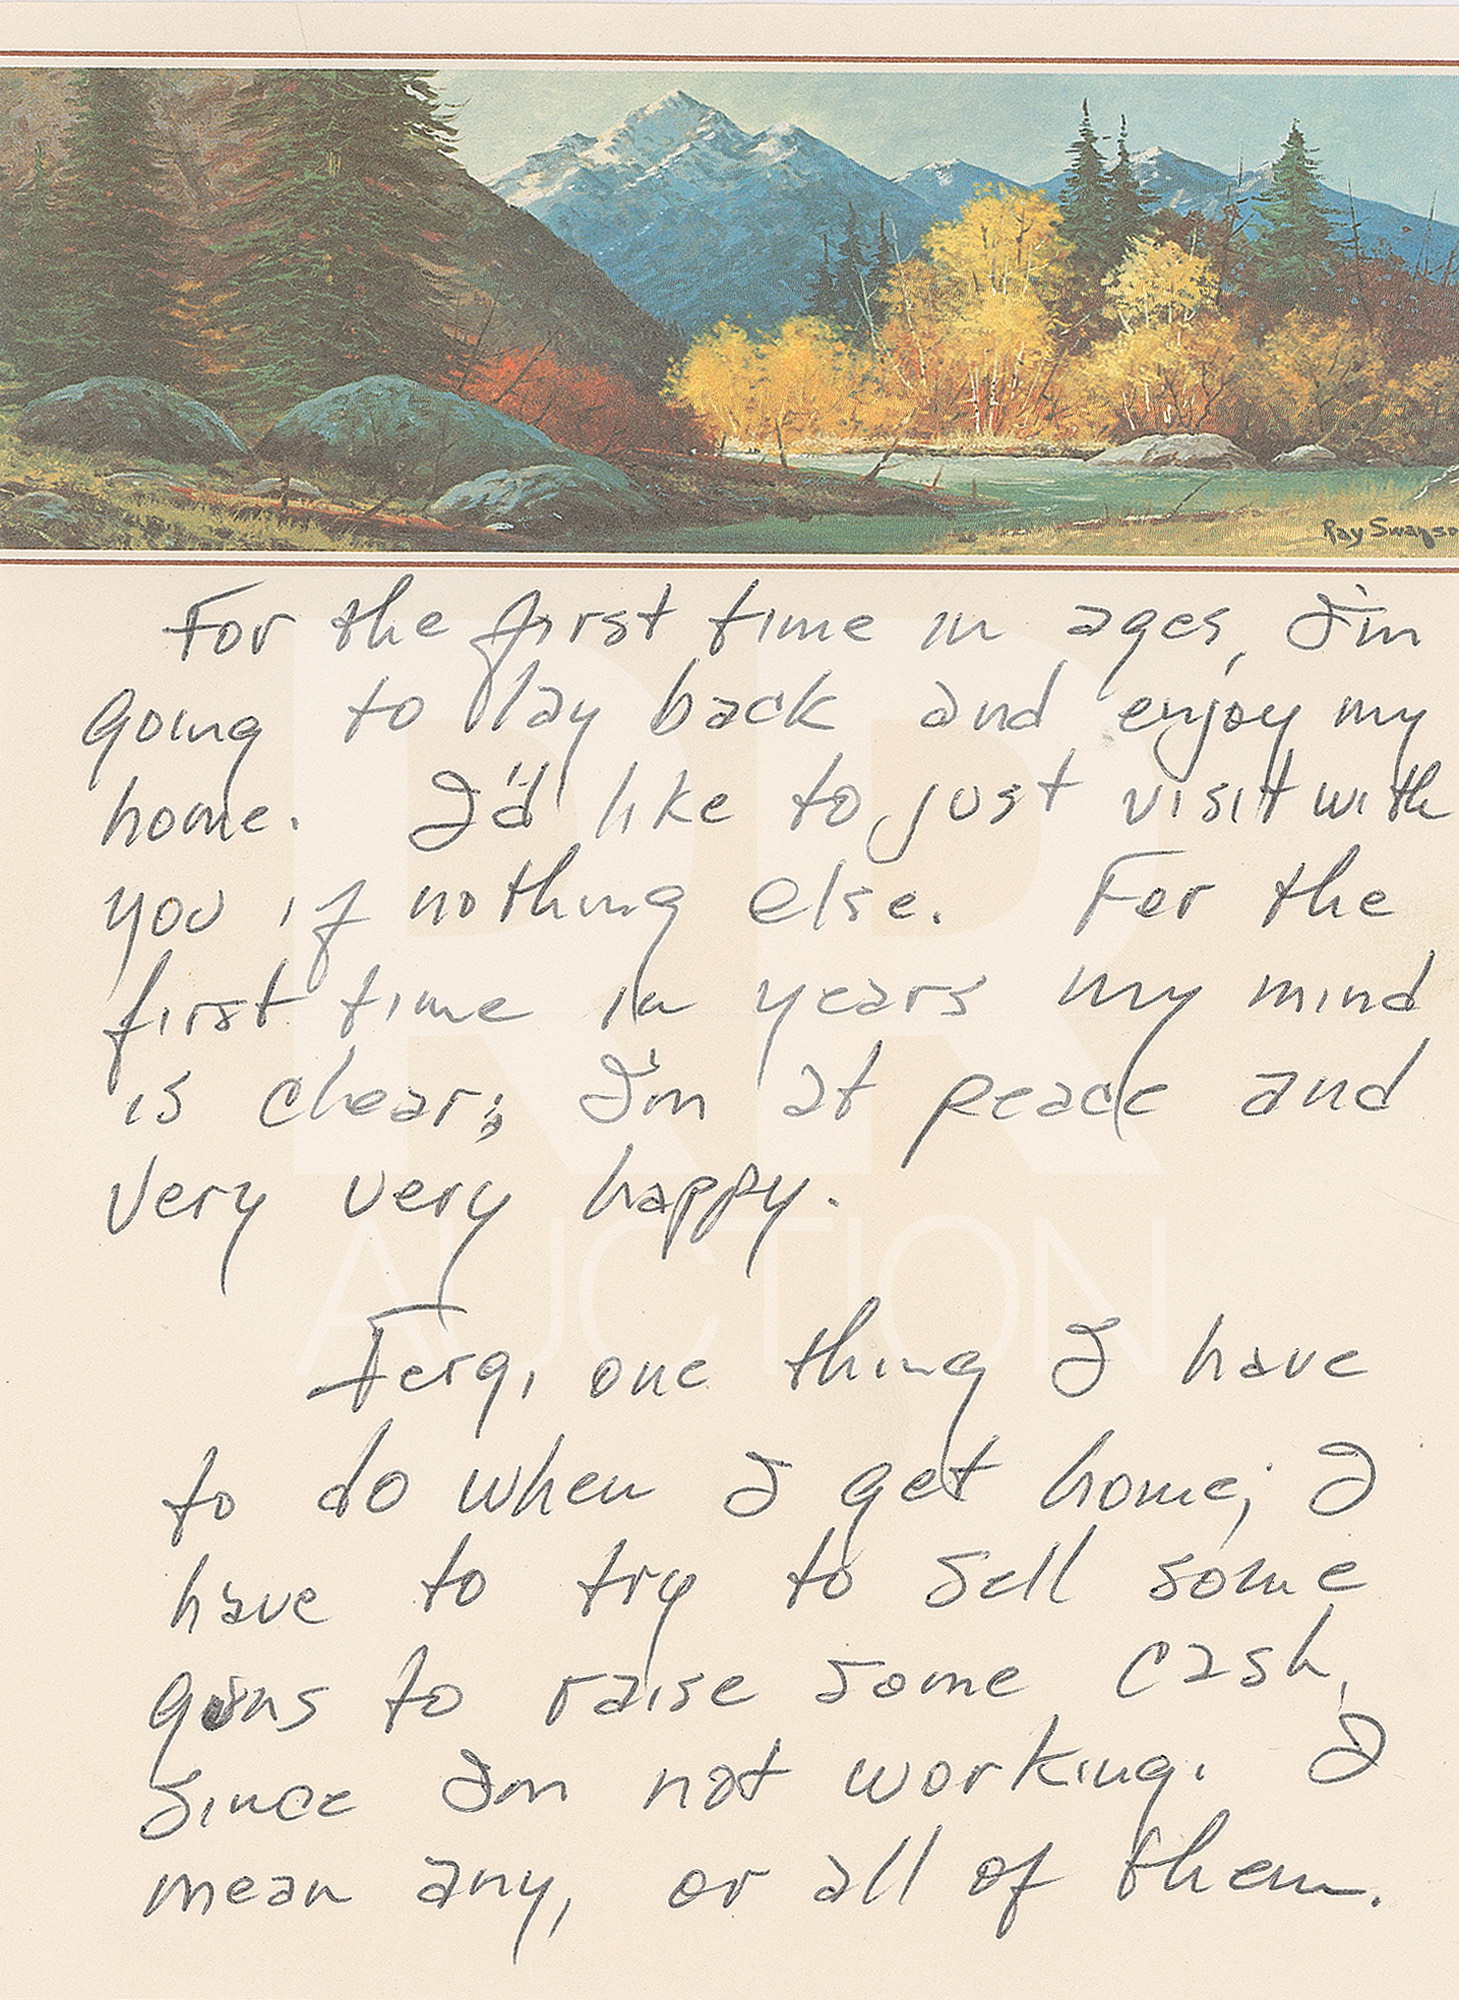 Ray Swanso
For the first time in ages, I'm
going to lay back and enjoy my
home. I'd like to just visit with
you if nothing else. For the
first time in years my mind
is clear; I'm at peace and
very very happy.
Ferg, one thing I have
to do when I get home; I
have to try to sell some
guns to raise some cash,
since I'm not working. I
mean any, or all of them.
RR
AUCTION